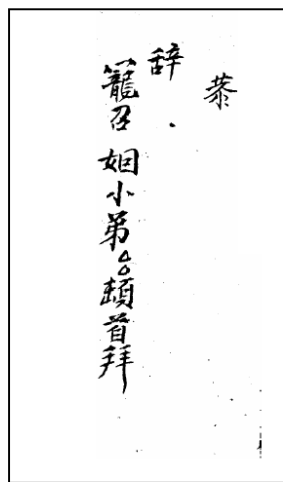 恭
辞
籠召姻小弟△△頓首拜